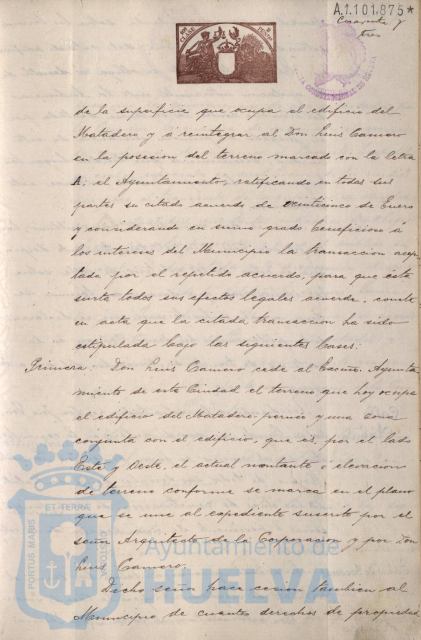 A.1.101.875*
Cuarenta y
tres
de la superficie que ocupa el edificio del
Matadero y á reintegrar al Don Luis Camero
en la posesion del terreno marcado con la letra
A; el Ayuntamiento, ratificando en todas sus
partes su citado acuerdo de veinticinco de Enero
y considerando en sumo grado beneficiosa á
los intereses del Municipio la transaccion acep-
tada por el repetido acuerdo, para que ésta
surta todos sus efectos legales acuerda, conste
en acta que la citada transaccion ha sido
estipulada bajo las siguientes bases:
Primera: Don Luis Camero cede al Excmo. Ayunta-
miento de esta Ciudad el terreno que hoy ocupa
el edificio del Matadero público y una zona
conjunta con el edificio, que es, por el lado
Este y Oeste, el actual montante ó elevacion
de terreno conforme se marca en el plano
que se une al expediente suscrito por el
señor Arquitecto de la Corporacion y por Don
Luis Camero.
Dicho señor hace cesion tambien al
Municipio de cuantos derechos de propiedad
ET TERRÆ
PORTUS MARIS
CUSTODIA
Ayuntamiento de
HUELVA